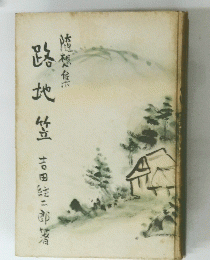 随想集
路地笠
吉田絃二郎著